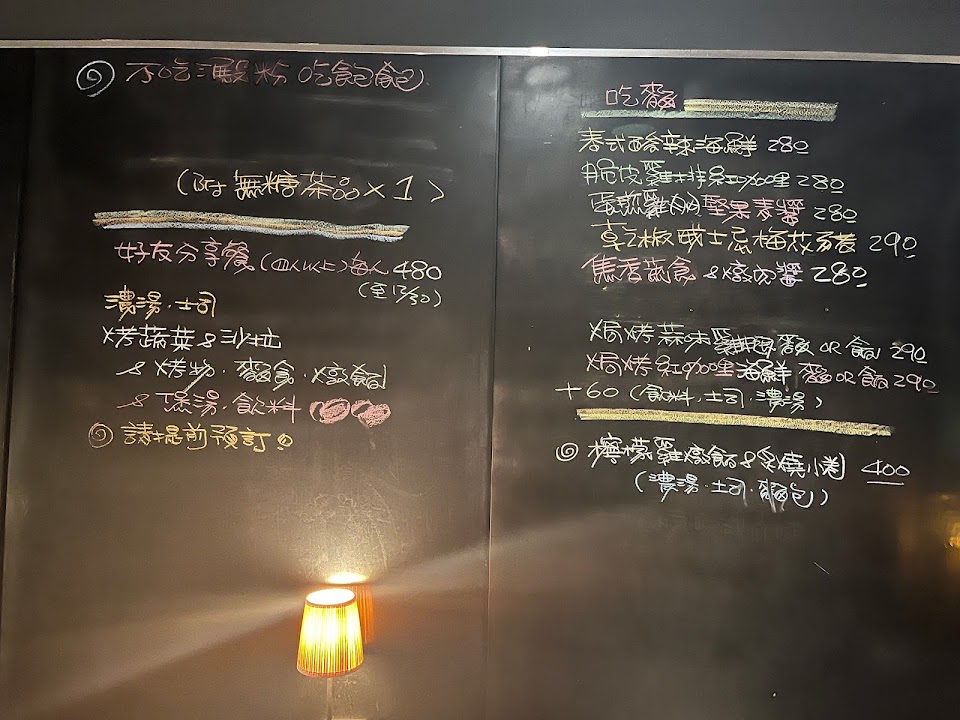 不吃澱粉 吃飽飽
(附 無糖茶品 x 1)
好友分享餐 (四人以上) 每人 480
(至12/30)
濃湯・土司
烤蔬菜 & 沙拉
& 烤物・麵食・燉飯
& 煲湯・飲料
請提前預訂!
吃麵
泰式酸辣海鮮 280
脆皮雞排紅咖哩 280
香煎雞肉 堅果青醬 280
乾椒 威士忌梅花豬 290
焦香蔬食 & 燉肉醬 280
焗烤蒜味雞腿麵 OR 飯 290
焗烤紅咖哩海鮮 麵 OR 飯 290
+60 (飲料・土司・濃湯)
檸檬雞燉飯 & 炙燒小卷 400
(濃湯・土司・麵包)